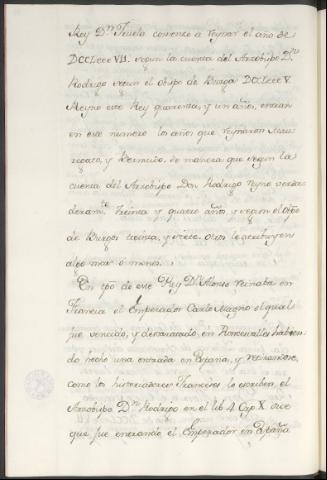 Rey D.n Fruela comenzo a reynar el año de
DCCLxxxVII. segun la cuenta del Arzobispo D.n
Rodrigo segun el obispo de Burgos DCCLxxxV
Reyno este Rey quarenta, y un años, entran
en este numero los años que reynaron
regato, y Bermudo. de manera que segun la
cuenta del Arzobispo Don Rodrigo reyno verda
deram.te treinta y quatro años, y segun el Obpo
de Burgos treinta, y siete. otros le atribuyen
algo mas o menos.
En tpo de este Rey D.n Alonso reinaba en
Francia el Emperador Carlo Magno el qual
fue vencido, y desbaratado, en Roncesvalles habien
do hecho una entrada en España, y retirandose,
como los historiadores Franceses lo escriben, el
Arzobispo D.n Rodrigo en el lib. 4 Cap X. dice
que fue entrando el Emperador en España